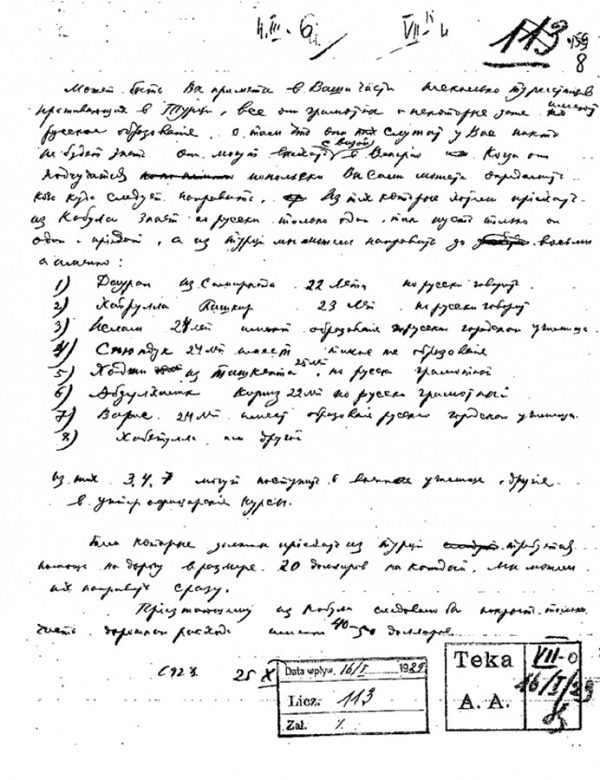 4.III-6
VII-
113
8
Может быть Вы примете в Ваши части несколько туркестанцев
проживающих в Турции, все они грамотны и некоторые даже имеют
русское образование. о том что они служат у Вас никто
не будет знать Они могут с визой в Когда они
подучатся Вы сами можете определить
кого куда следует направить. Из тех которые могли приехать
из Кабула знает по русски только один, так пусть только он
один и приедет, а из Турции мы можем направить до восьми
а именно:
1) из Самарканда 22 лета по русски говорит
2) Хайрулла Башкир 23 лет по русски говорит
3) Ислам 24 лет имеет образование русского городского училища
4) 24 лет имеет такое же образование
5) Ходжи из Ташкента 25 лет по русски грамотный
6) Киргиз 22 лет по русски грамотный
7) Варис 24 лет имеет образование русского городского училища
8) или другой
из них 3, 4, 7 могут поступить в военное училище, другие
в унтер офицерские курсы.
Тем которые должны приехать из Турции требуется
помощь на дорогу в размере 20 долларов на каждый, мы можем
их направить сразу.
из Кабула следовало бы покрыть только
часть дорожных расходов 40-50 долларов.
25 X
Data wpływ. 16/I 1929
Licz. 113
Zał. %
Teka
A. A.
VII-0
16/I/29